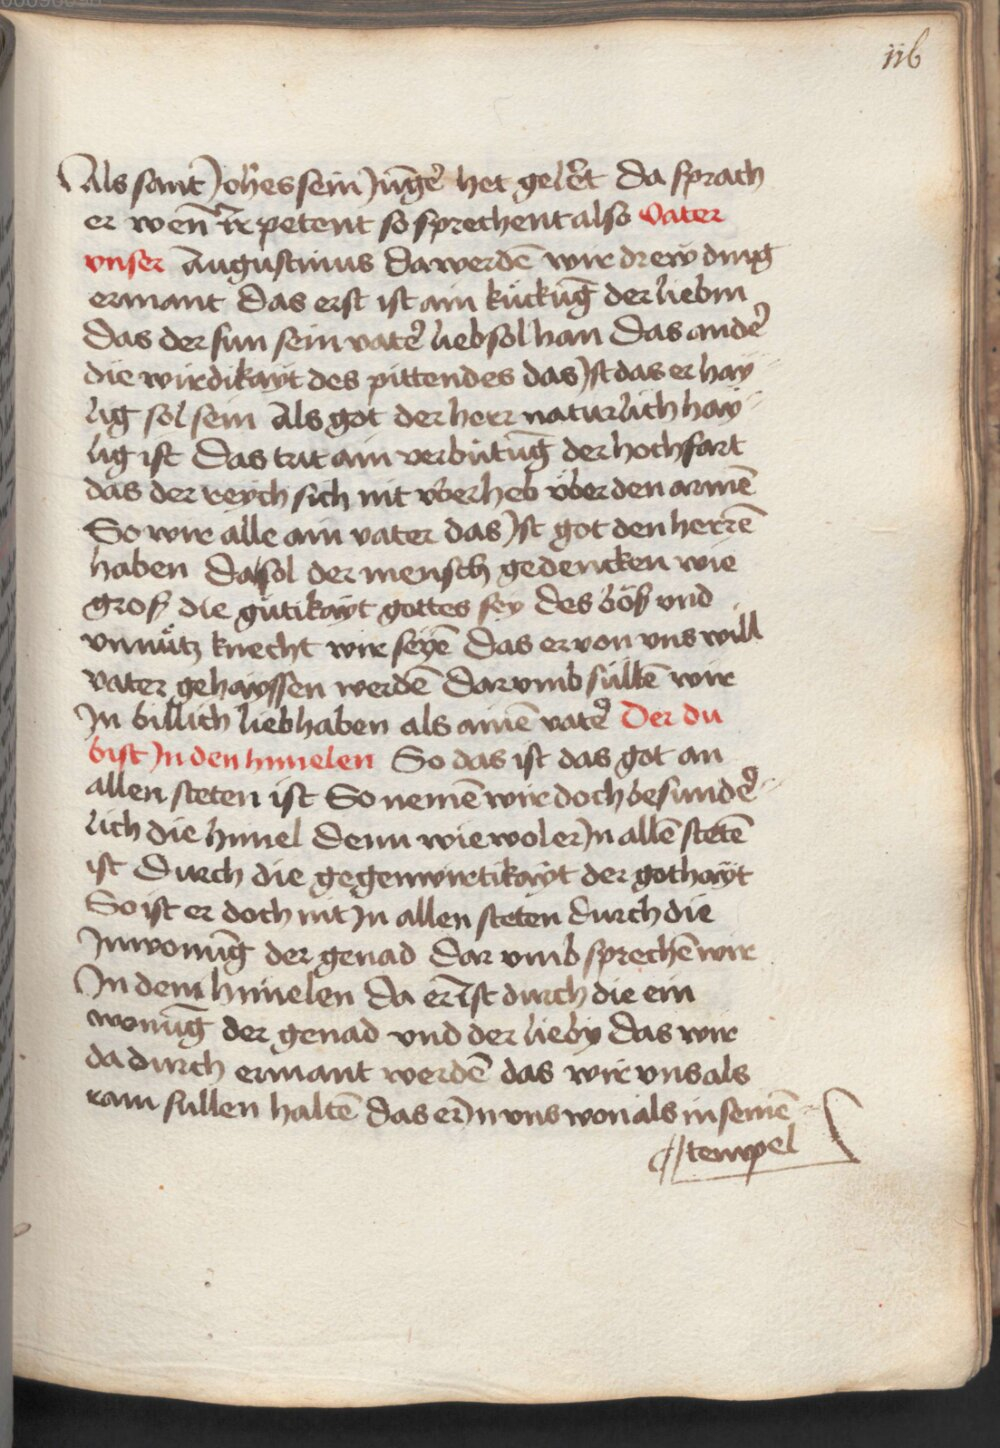 116
Als sant Joh̄es sein Jūgeꝰ het gelert Da sprach
er wen̄ ir petent so sprechent also Vater
vnser Augustinus Da werdē wir drew ding
ermant Das erst ist ain kückūg der liebin
Das der sun sein vateꝰ lieb sol han Das andeꝰ
die wirdikayt des pittendes das Jst das er hay
lig sol sein Als got der herr naturlich hay
lig ist Das trit ain verbutūg der hochfart
das der reych sich nit v̈berheb v̈ber den armē
So wir alle ain vater das Jst got den herrē
haben Da sol der mensch gedencken wie
groß die gütikayt gottes sey Des böß vnd
vnnütz knecht wir seyē Das er von vns will
vater gehayssen werdē Darvmb süllē wir
Jn billich lieb haben als ainē vateꝰ Der du
bist Jn den himelen So das ist das got an
allen steten ist So nemē wir doch besundeꝰ
lich die himel Denn wie wol er Jn allē stetē
ist Durch die gegenwirtikayt der gothayt
So ist er doch nit Jn allen steten Durch die
Jnwonūg der genad Dar vmb sprechē wir
Jn dem himelen Da er ist durch die ein
wonūg der genad vnd der lieby Das wir
da durch ermant werdē das wir vns als
rain sullen haltē Das er Jn vns won als in seinē
tempel